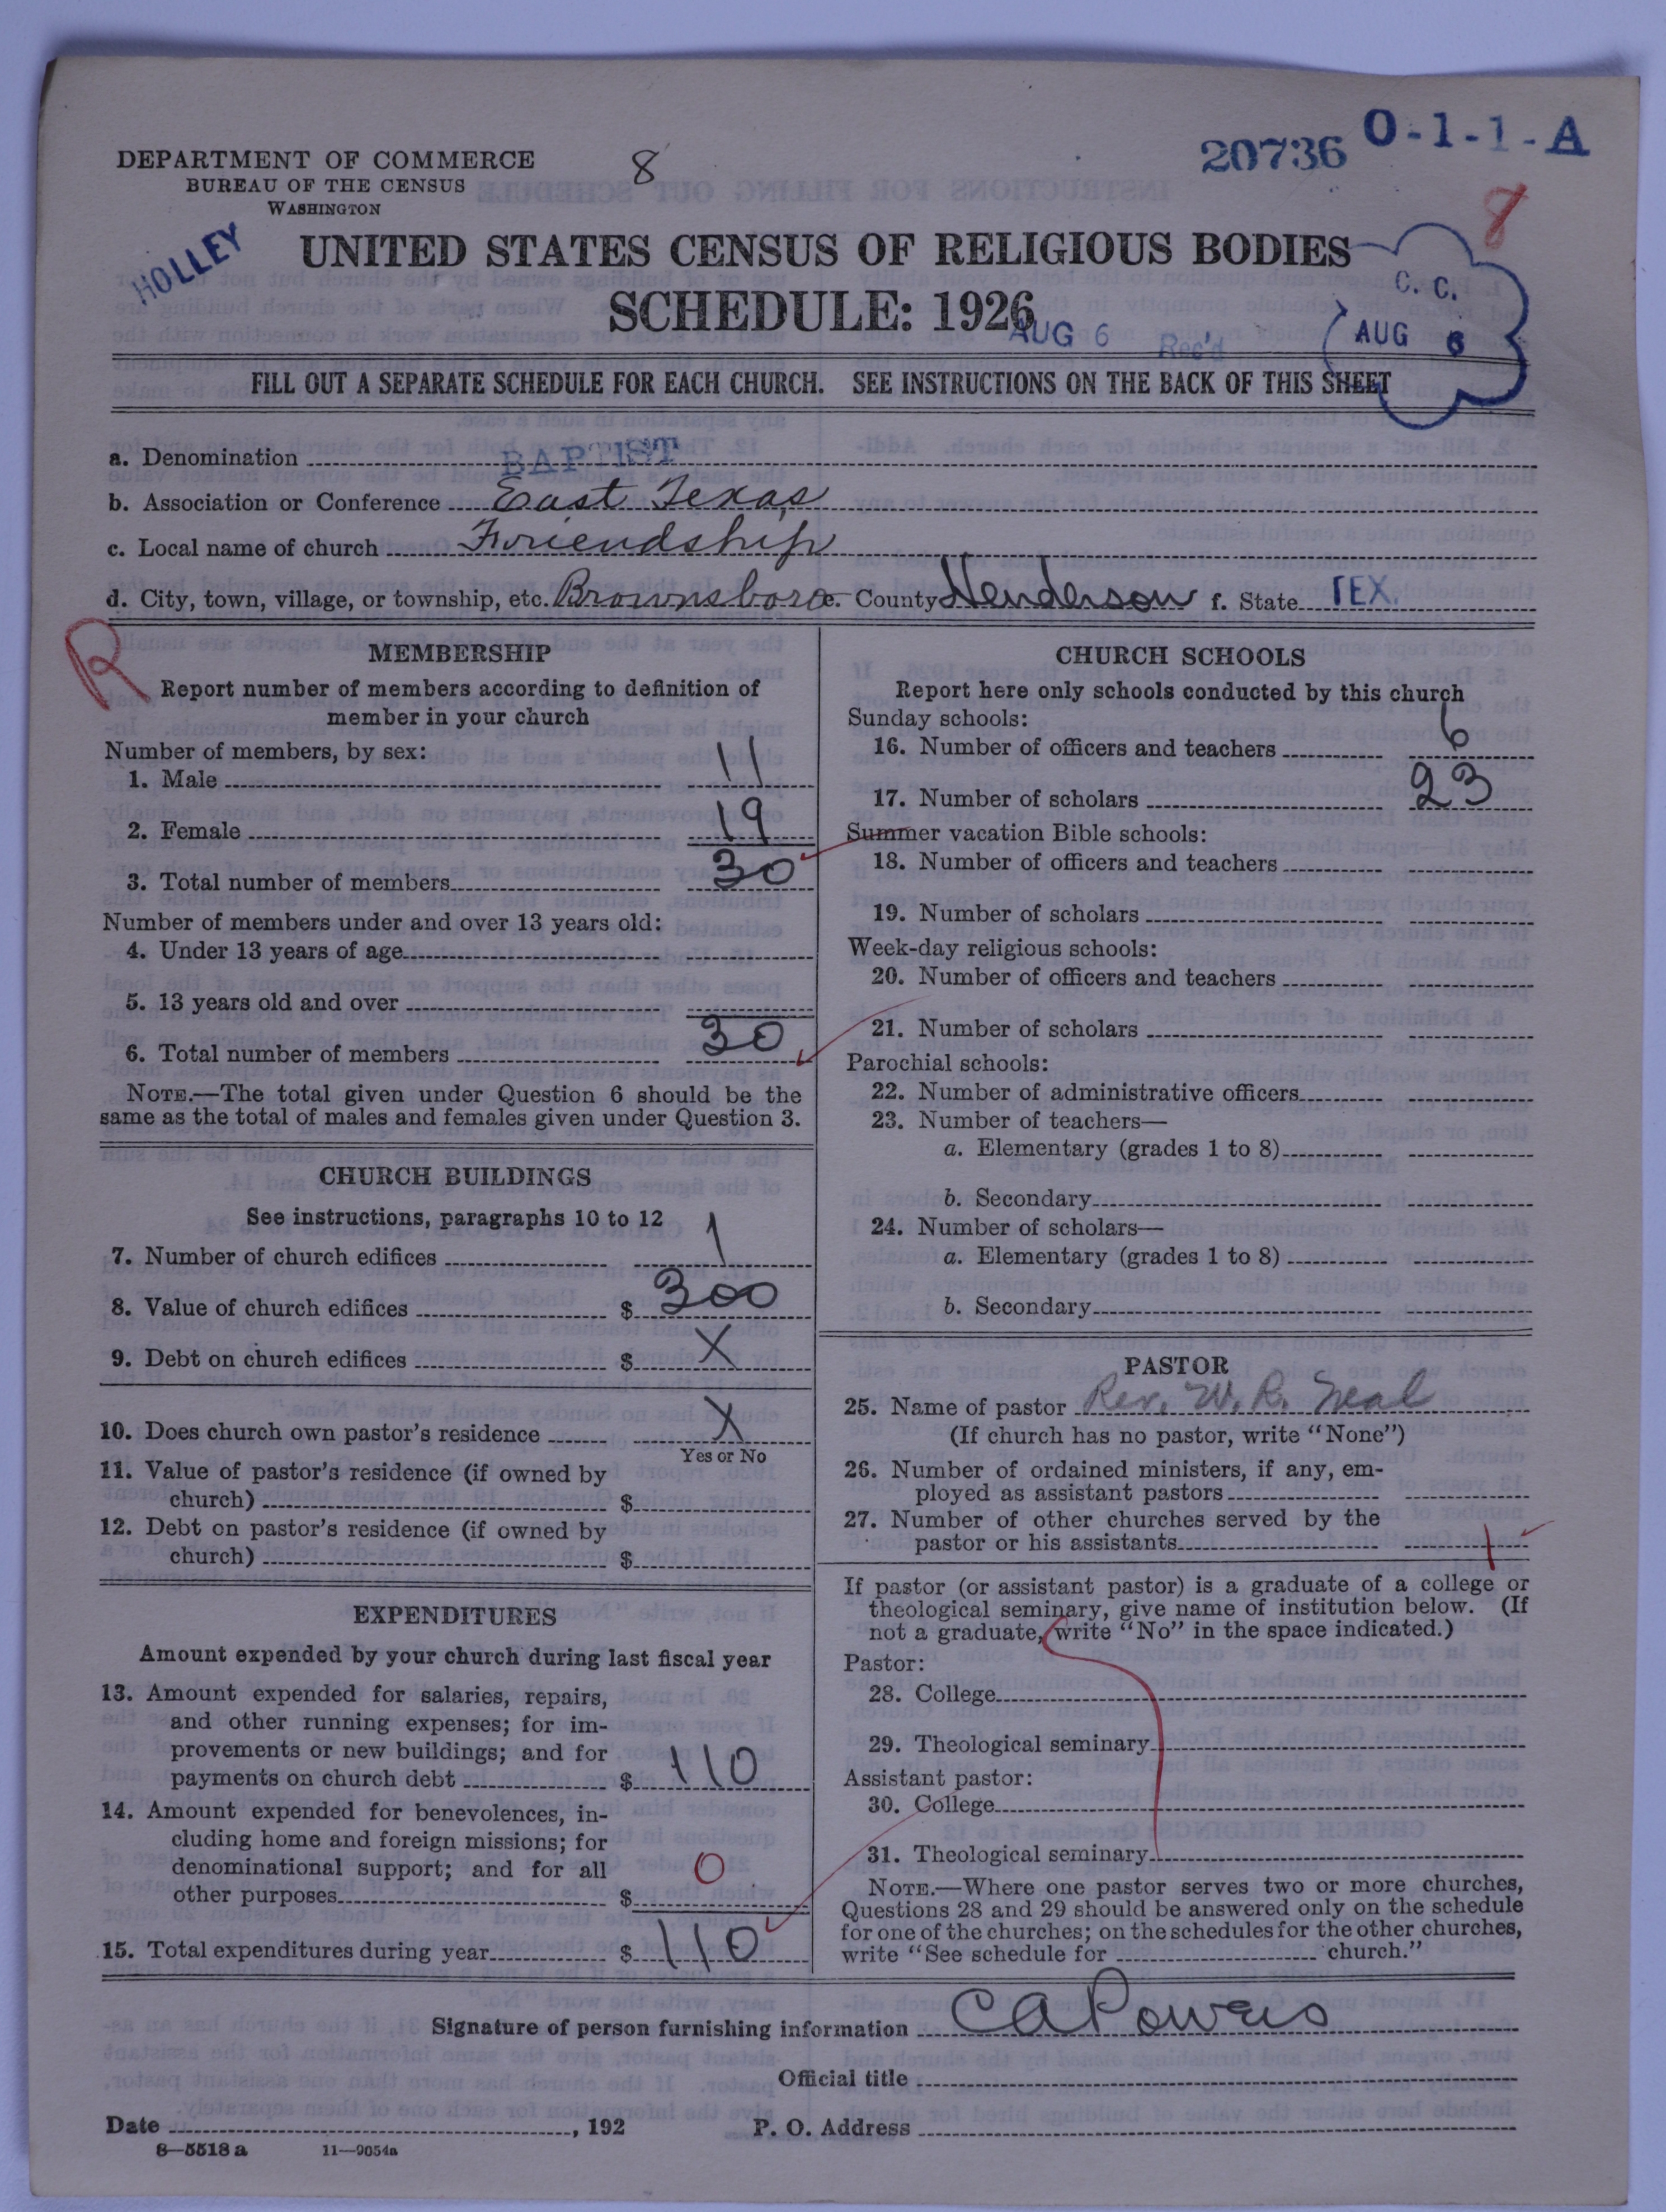 DEPARTMENT OF COMMERCE
BUREAU OF THE CENSUS
WASHINGTON
8
20736
O-1-1-A
8
HOLLEY
UNITED STATES CENSUS OF RELIGIOUS BODIES
SCHEDULE: 1926
AUG 6 Rec'd
C. C.
AUG 6
FILL OUT A SEPARATE SCHEDULE FOR EACH CHURCH. SEE INSTRUCTIONS ON THE BACK OF THIS SHEET
a. Denomination BAPTIST
b. Association or Conference East Texas
c. Local name of church Friendship
d. City, town, village, or township, etc. Brownsboro e. County Henderson f. State TEX.
R
MEMBERSHIP
Report number of members according to definition of
member in your church
Number of members, by sex:
1. Male 11
2. Female 19
3. Total number of members 30
Number of members under and over 13 years old:
4. Under 13 years of age
5. 13 years old and over
6. Total number of members 30
NOTE.—The total given under Question 6 should be the
same as the total of males and females given under Question 3.
CHURCH BUILDINGS
See instructions, paragraphs 10 to 12
7. Number of church edifices 1
8. Value of church edifices $ 300
9. Debt on church edifices $ X
10. Does church own pastor's residence X
Yes or No
11. Value of pastor's residence (if owned by
church) $
12. Debt on pastor's residence (if owned by
church) $
EXPENDITURES
Amount expended by your church during last fiscal year
13. Amount expended for salaries, repairs,
and other running expenses; for im-
provements or new buildings; and for
payments on church debt $ 110
14. Amount expended for benevolences, in-
cluding home and foreign missions; for
denominational support; and for all
other purposes $ 0
15. Total expenditures during year $ 110
CHURCH SCHOOLS
Report here only schools conducted by this church
Sunday schools:
16. Number of officers and teachers 6
17. Number of scholars 23
Summer vacation Bible schools:
18. Number of officers and teachers
19. Number of scholars
Week-day religious schools:
20. Number of officers and teachers
21. Number of scholars
Parochial schools:
22. Number of administrative officers
23. Number of teachers—
a. Elementary (grades 1 to 8)
b. Secondary
24. Number of scholars—
a. Elementary (grades 1 to 8)
b. Secondary
PASTOR
25. Name of pastor Rev. W. R. Neal
(If church has no pastor, write "None")
26. Number of ordained ministers, if any, em-
ployed as assistant pastors
27. Number of other churches served by the
pastor or his assistants 1
If pastor (or assistant pastor) is a graduate of a college or
theological seminary, give name of institution below. (If
not a graduate, write "No" in the space indicated.)
Pastor:
28. College
29. Theological seminary
Assistant pastor:
30. College
31. Theological seminary
NOTE.—Where one pastor serves two or more churches,
Questions 28 and 29 should be answered only on the schedule
for one of the churches; on the schedules for the other churches,
write "See schedule for church."
Signature of person furnishing information C A Powers
Official title
Date , 192 P. O. Address
8—5518 a 11—9054a